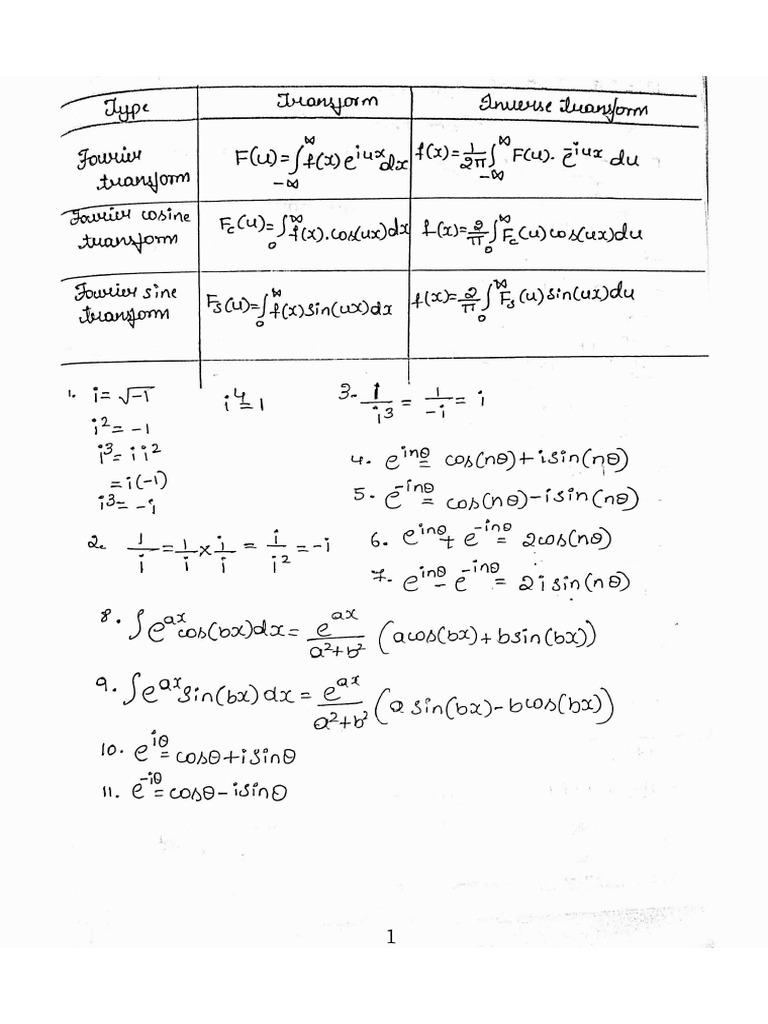 Type | Transform | Inverse transform
Fourier transform | F(u)=∫_{-∞}^{∞} f(x) e^{iux} dx | f(x)=1/2π ∫_{-∞}^{∞} F(u). e^{-iux} du
Fourier cosine transform | F_c(u)=∫_0^∞ f(x).cos(ux)dx | f(x)=2/π ∫_0^∞ F_c(u)cos(ux)du
Fourier sine transform | F_s(u)=∫_0^∞ f(x)sin(ux)dx | f(x)=2/π ∫_0^∞ F_s(u)sin(ux)du
1. i=√-1
i²=-1
i³=i i²
=i(-1)
i³=-i
i⁴=1
2. 1/i = 1/i × i/i = i/i² = -i
3. 1/i³ = 1/-i = i
4. e^{inθ} = cos(nθ)+isin(nθ)
5. e^{-inθ} = cos(nθ)-isin(nθ)
6. e^{inθ} + e^{-inθ} = 2cos(nθ)
7. e^{inθ} - e^{-inθ} = 2isin(nθ)
8. ∫e^{ax}cos(bx)dx = e^{ax}/(a²+b²) (acos(bx)+bsin(bx))
9. ∫e^{ax}sin(bx)dx = e^{ax}/(a²+b²) (a sin(bx)-bcos(bx))
10. e^{iθ} = cosθ+isinθ
11. e^{-iθ} = cosθ-isinθ
1